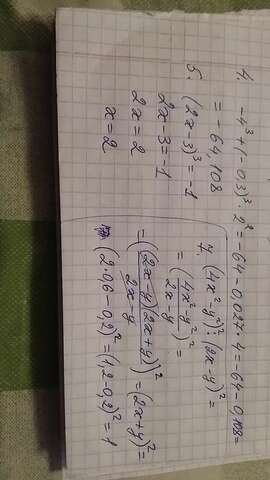 4. -4³+(-0,3)³·2²=-64-0,027·4=-64-0,108=
= -64,108
5. (2x-3)³=-1
2x-3=-1
2x=2
x=2
7. (4x²-y²)²:(2x-y)²=
=(4x²-y²/2x-y)²=
=((2x-y)(2x+y)/2x-y)²=(2x+y)²=
(2·0,6-0,2)²=(1,2-0,2)²=1